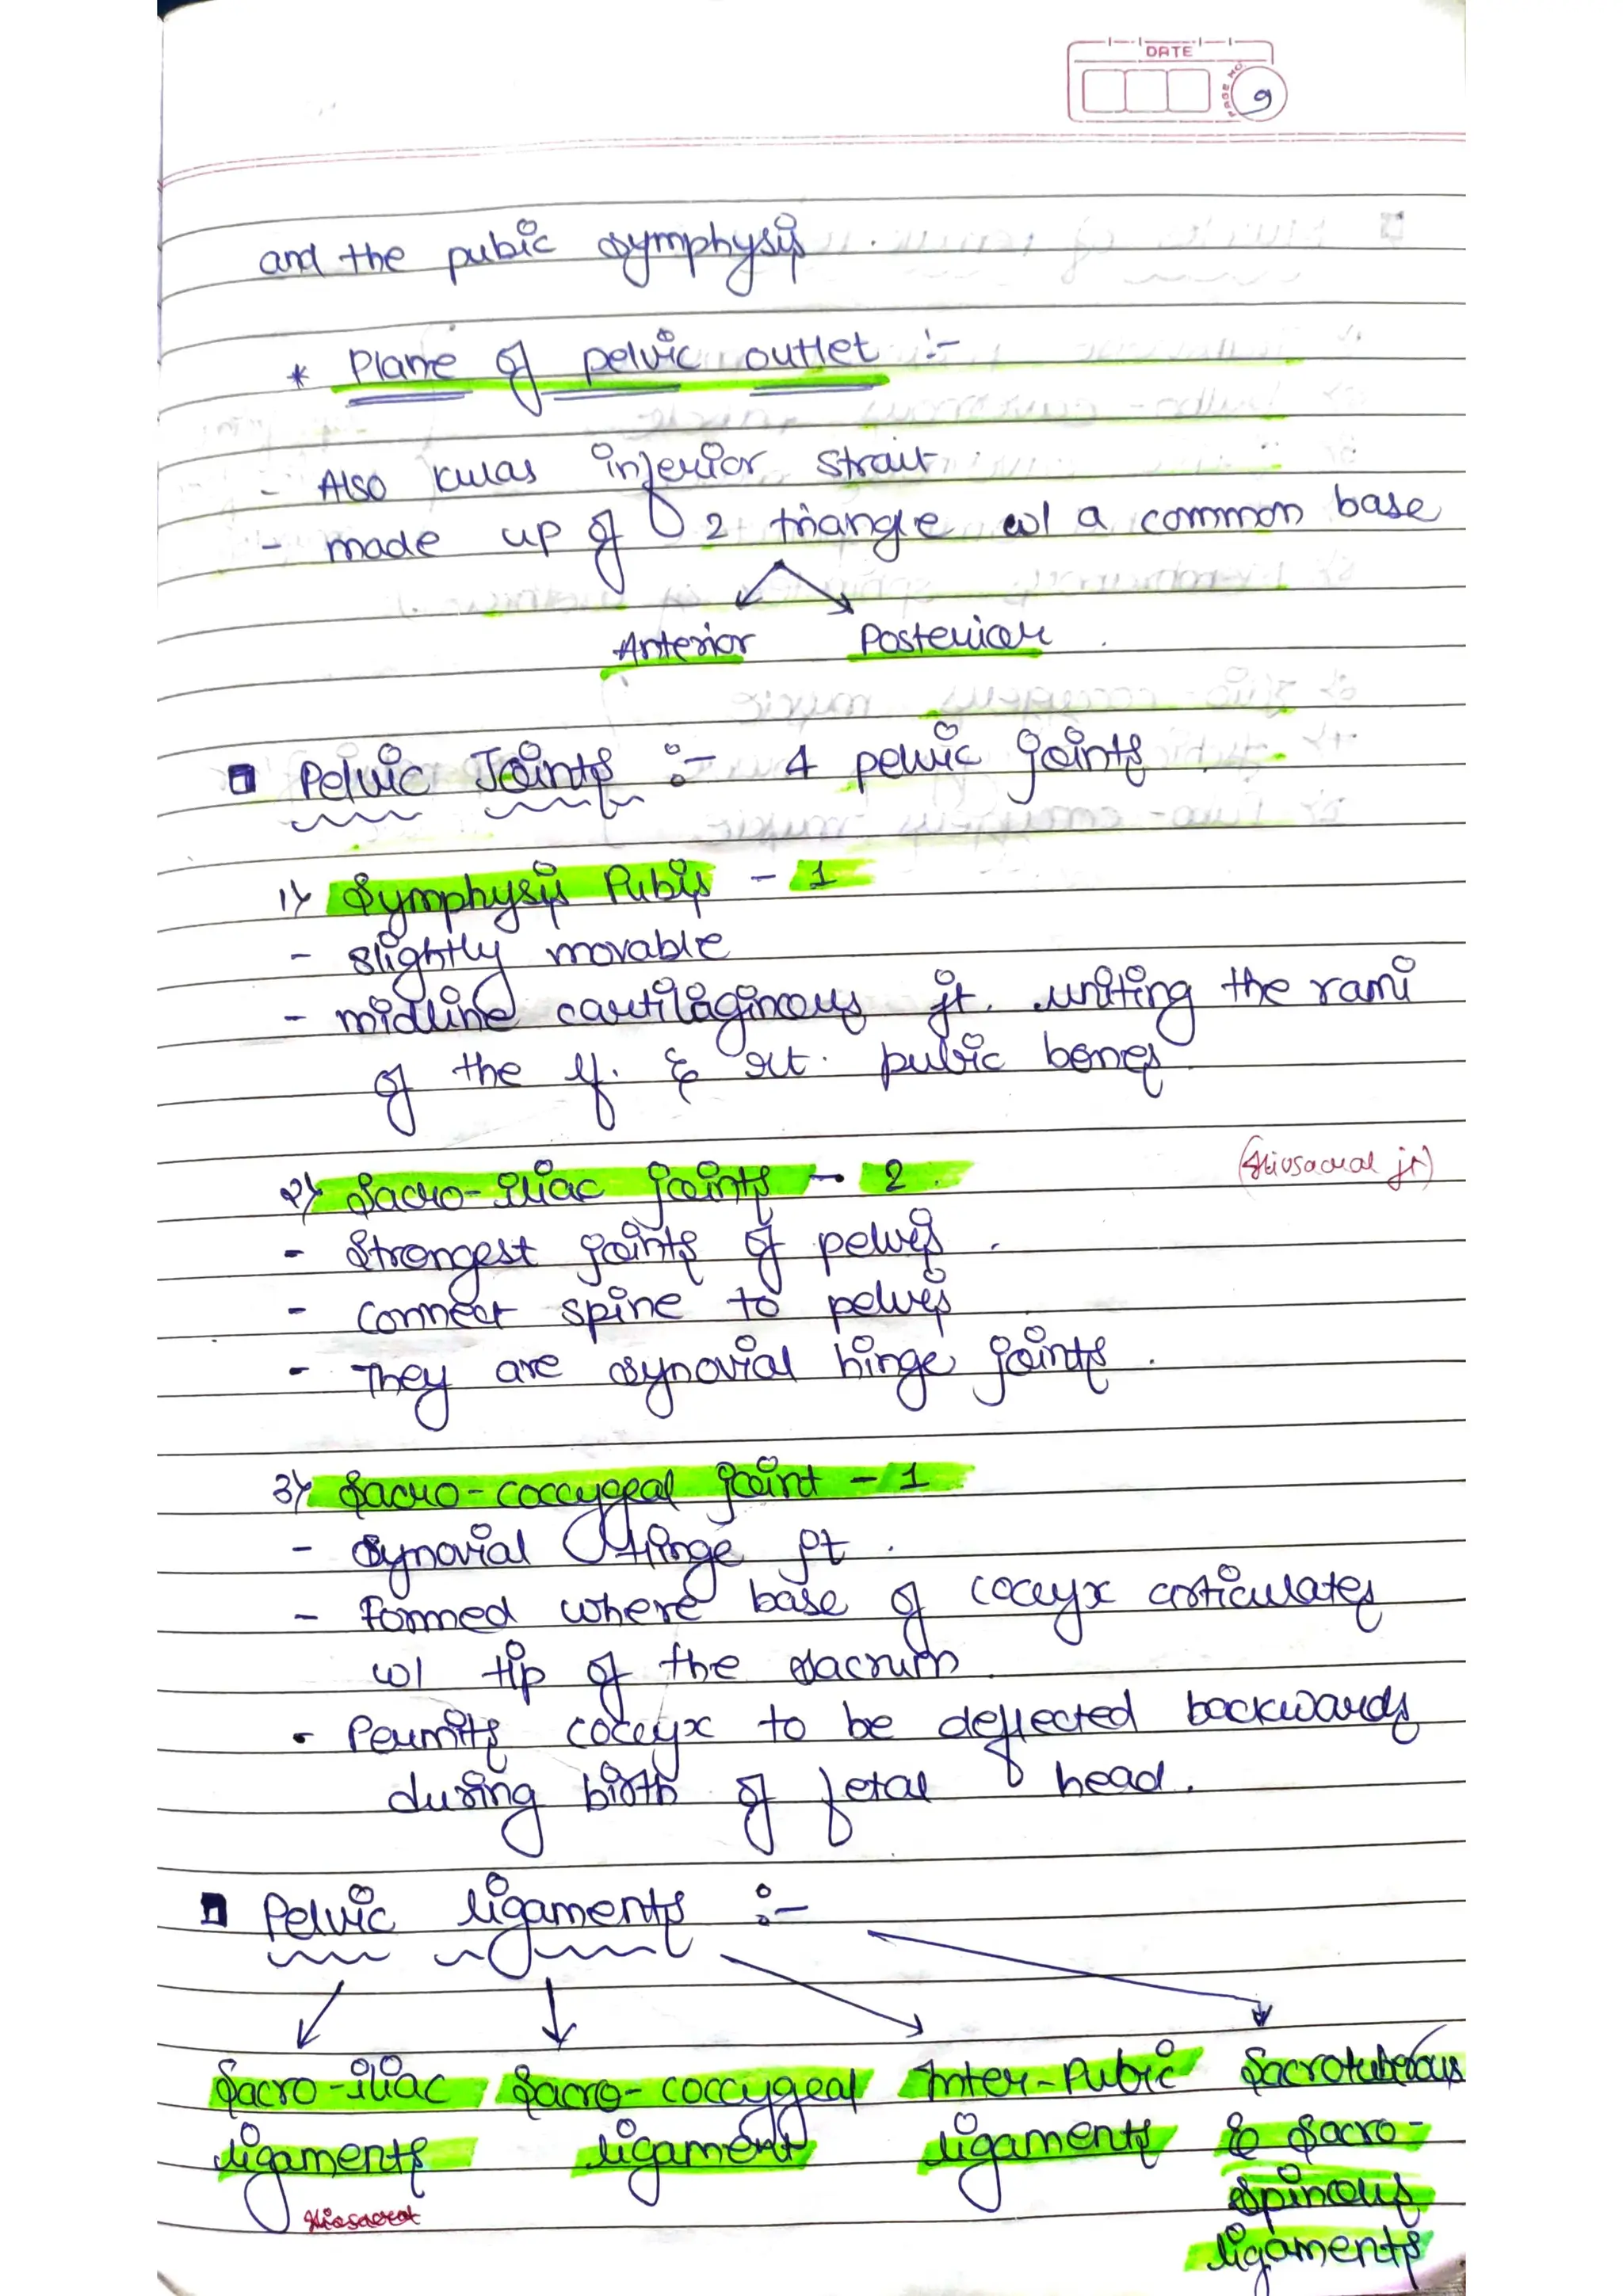 DATE
PAGE NO.
9
and the pubic symphysis.
* Plane of pelvic outlet :-
- Also k/as inferior strait
- made up of 2 triangle w/ a common base
Anterior Posterior.
Pelvic Joints :- 4 pelvic joints.
1) Symphysis Pubis - 1
- slightly movable
- midline cartilaginous jt. uniting the rami
of the lf. & rt. pubic bones.
2) Sacro-iliac joints - 2.
(Iliosacral jt)
- Strongest joints of pelvis.
- connect spine to pelvis
- They are synovial hinge joints.
3) Sacro-coccygeal joint - 1
- Synovial Hinge jt.
- Formed where base of coccyx articulates
w/ tip of the sacrum.
- Permits coccyx to be deflected backwards
during birth of fetal head.
Pelvic ligaments :-
Sacro-iliac Sacro-coccygeal Inter-Pubic Sacrotuberous
ligaments ligament ligaments & Sacro-
Iliosacral spinous
ligaments